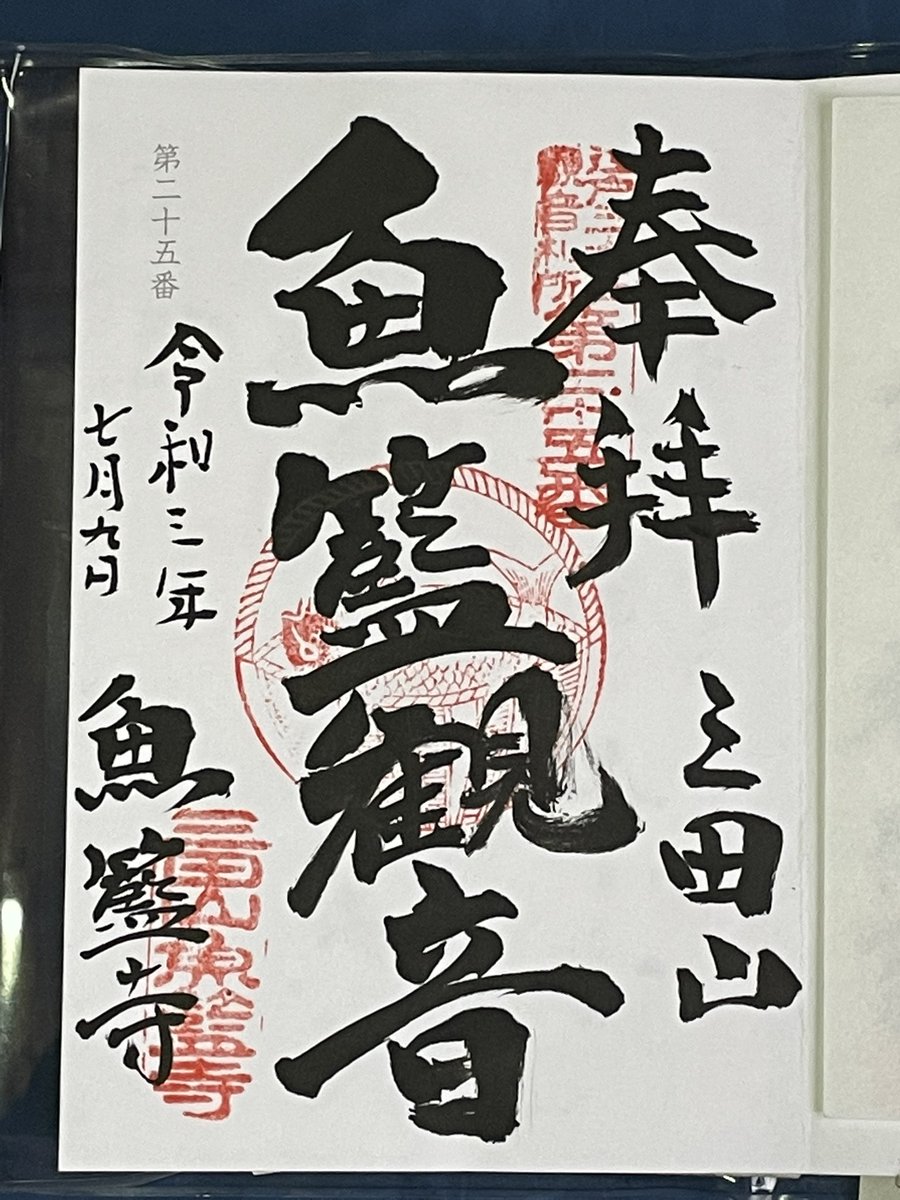 奉拝
三田山
魚籃観音
第二十五番
令和三年
七月九日
魚籃寺
観音札所第二十五番
三田山魚籃寺